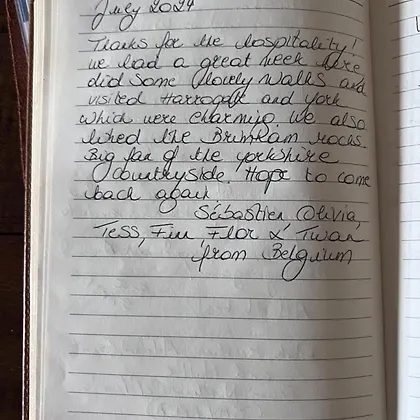 July 2024
Thanks for the hospitality!
we had a great week here
did some lovely walks and
visited Harrogate and York
which were charming. We also
liked the Brimham rocks.
Big fan of the yorkshire
countryside. Hope to come
back again
Sébastien Olivia,
Tess, Finn Flor & Twan
from Belgium